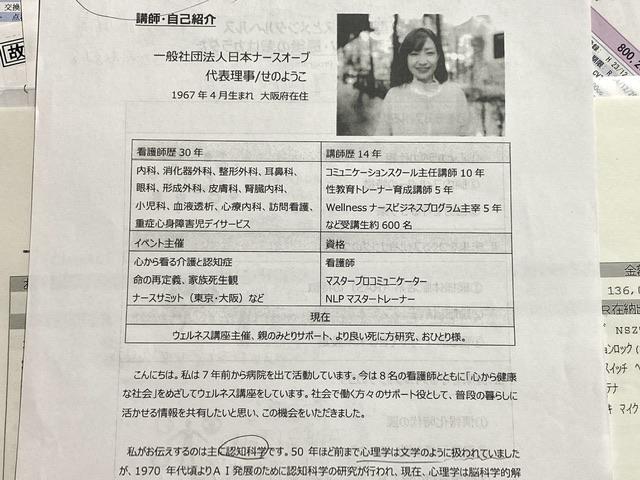 講師・自己紹介
一般社団法人日本ナースオーブ
代表理事/せのようこ
1967年4月生まれ 大阪府在住
看護師歴30年
講師歴14年
内科、消化器外科、整形外科、耳鼻科、
眼科、形成外科、皮膚科、腎臓内科、
小児科、血液透析、心療内科、訪問看護、
重症心身障害児デイサービス
コミュニケーションスクール主任講師10年
性教育トレーナー育成講師5年
Wellnessナースビジネスプログラム主宰5年
など受講生約600名
イベント主催
資格
心から看る介護と認知症
命の再定義、家族死生観
ナースサミット（東京・大阪）など
看護師
マスタープロコミュニケーター
NLPマスタートレーナー
現在
ウェルネス講座主催、親のみとりサポート、より良い死に方研究、おひとり様。
こんにちは。私は7年前から病院を出て活動しています。今は8名の看護師とともに「心から健康
な社会」をめざしてウェルネス講座をしています。社会で働く方々のサポート役として、普段の暮らしに
活かせる情報を共有したいと思い、この機会をいただきました。
私がお伝えするのは主に認知科学です。50年ほど前まで心理学は文学のように扱われていました
が、1970年代頃よりAI発展のために認知科学の研究が行われ、現在、心理学は脳科学的解
交換
故
800,
金
136,0
R在納出
NSZ
ョンロック(
スイッチ
テナ
キ マイク